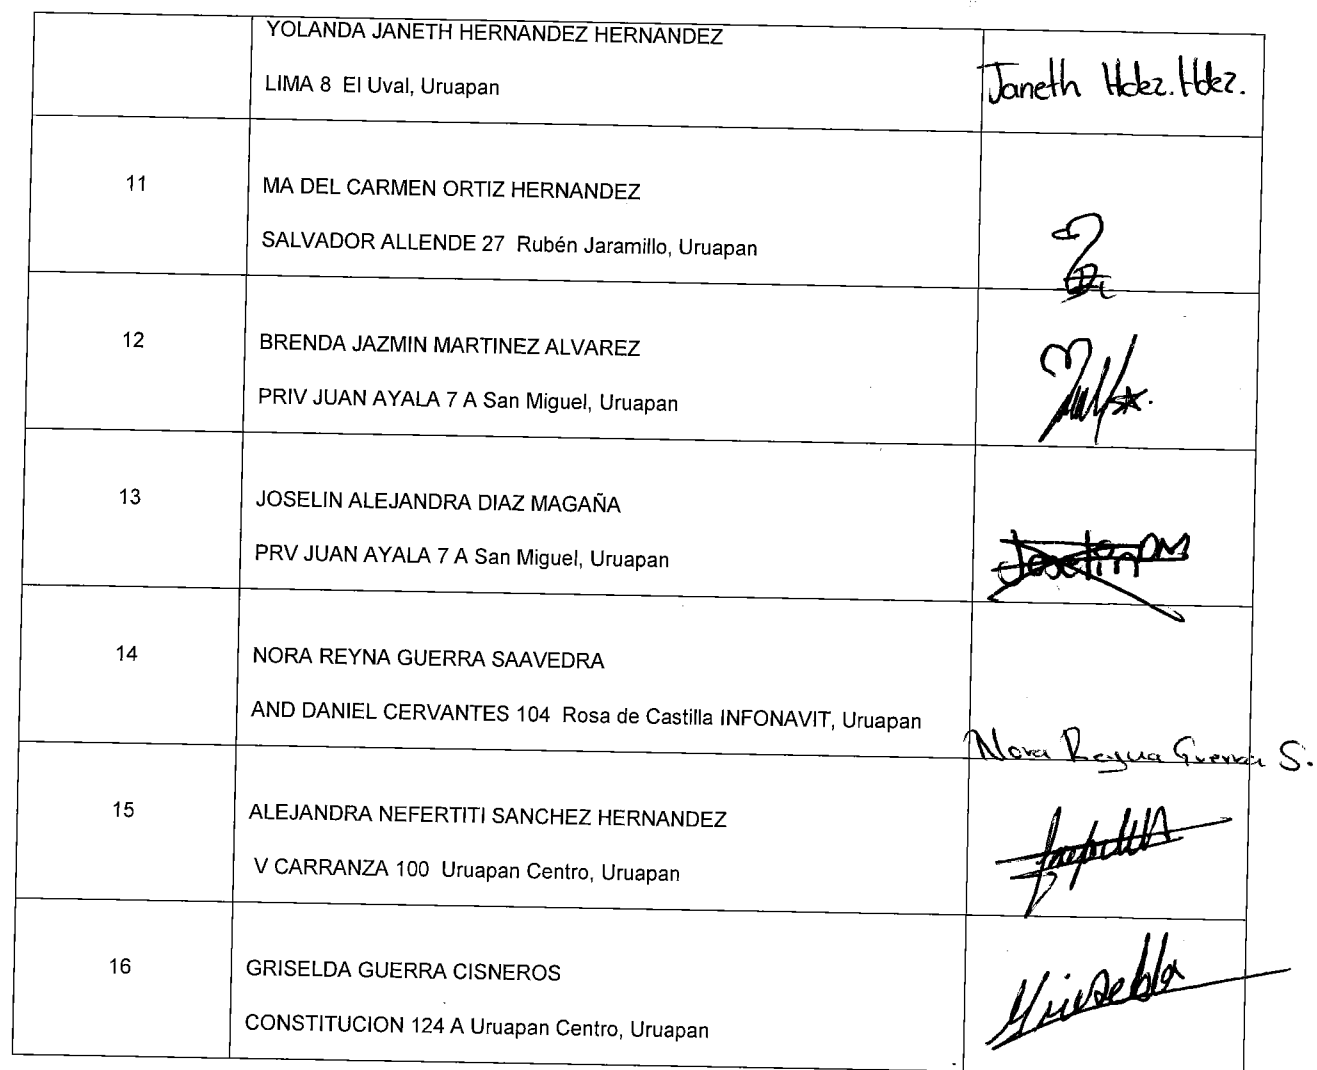 YOLANDA JANETH HERNANDEZ HERNANDEZ
LIMA 8 El Uval, Uruapan
Janeth Hdez. Hdez.
11
MA DEL CARMEN ORTIZ HERNANDEZ
SALVADOR ALLENDE 27 Rubén Jaramillo, Uruapan
12
BRENDA JAZMIN MARTINEZ ALVAREZ
PRIV JUAN AYALA 7 A San Miguel, Uruapan
13
JOSELIN ALEJANDRA DIAZ MAGAÑA
PRV JUAN AYALA 7 A San Miguel, Uruapan
Joselin DM
14
NORA REYNA GUERRA SAAVEDRA
AND DANIEL CERVANTES 104 Rosa de Castilla INFONAVIT, Uruapan
Nora Reyna Guerra S.
15
ALEJANDRA NEFERTITI SANCHEZ HERNANDEZ
V CARRANZA 100 Uruapan Centro, Uruapan
16
GRISELDA GUERRA CISNEROS
CONSTITUCION 124 A Uruapan Centro, Uruapan
Griselda